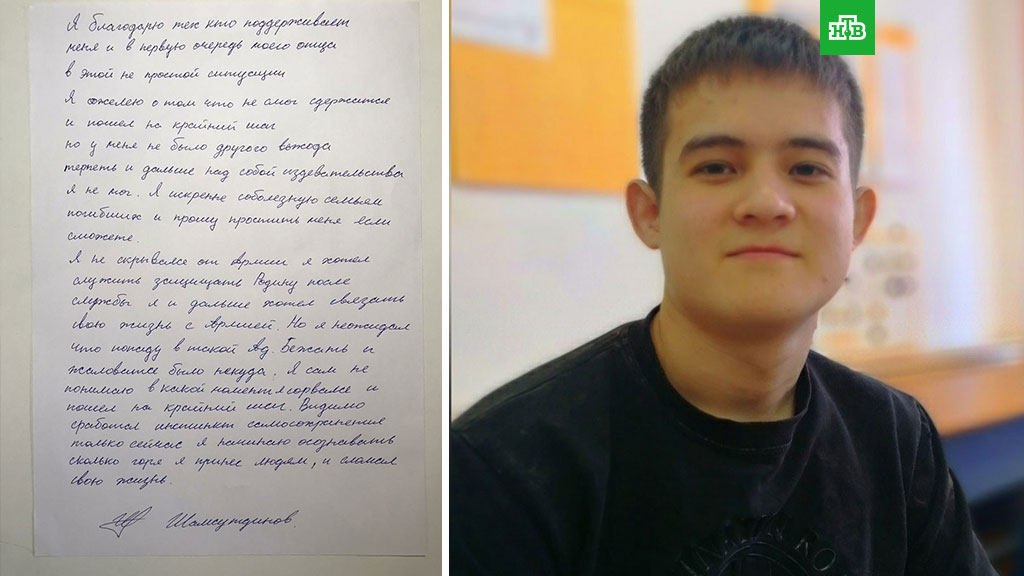 Я благодарю тех кто поддерживает
меня и в первую очередь моего отца
в этой не простой ситуации
Я сожелею о том что не смог сдержатся
и пошел на крайний шаг
но у меня не было другого выхода
терпеть и дальше над собой издевательства
я не мог. Я искренне соболезную семьям
погибших и прошу простить меня если
сможете.
Я не скрывался от Армии я хотел
служить защищать Родину после
службы я и дальше хотел связать
свою жизнь с Армией. Но я неожидал
что попаду в такой Ад. Бежать и
жаловатся было некуда. Я сам не
понимаю в какой момент я сорвался и
пошел на крайний шаг. Видимо
сработал инстинкт самосохранения
только сейчас я начинаю осознавать
сколько горя я принес людям, и сломал
свою жизнь.
Шамсутдинов.
НТВ